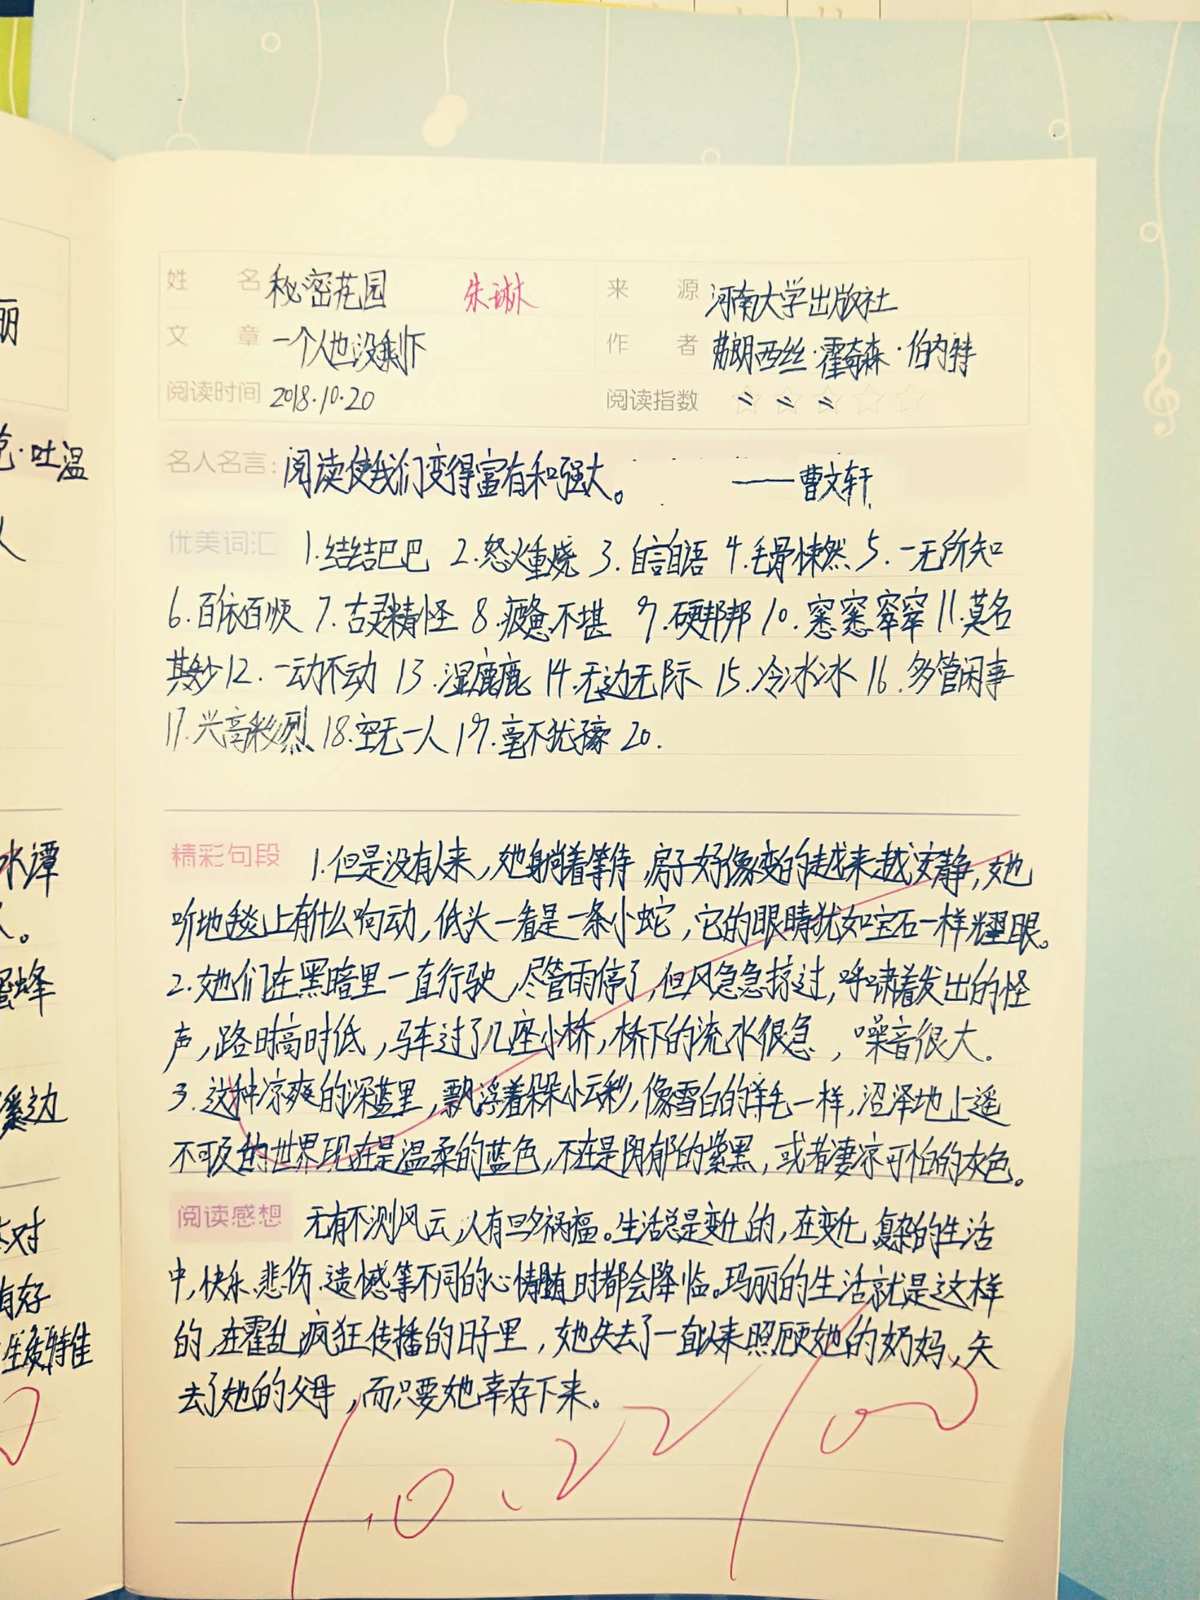 姓 名 秘密花园 朱琳 来 源 河南大学出版社
文 章 一个人也没剩下 作 者 弗朗西丝·霍奇森·伯内特
阅读时间 2018.10.20 阅读指数
名人名言: 阅读使我们变得富有和强大。 ——曹文轩
优美词汇 1.结结巴巴 2.怒火重烧 3.自言自语 4.毛骨悚然 5.一无所知
6.百依百顺 7.古灵精怪 8.疲惫不堪 9.硬邦邦 10.窸窸窣窣 11.莫名
其妙 12.一动不动 13.湿鹿鹿 14.无边无际 15.冷冰冰 16.多管闲事
17.兴高彩烈 18.空无一人 19.毫不犹豫 20.
精彩句段 1.但是没有人来,她躺着等待,房子好像变的越来越安静,她
听地毯上有什么响动,低头一看是一条小蛇,它的眼睛犹如宝石一样耀眼。
2.她们在黑暗里一直行驶,尽管雨停了,但风急急掠过,呼啸着发出的怪
声,路时高时低,马车过了几座小桥,桥下的流水很急,噪音很大.
3.这种凉爽的深蓝里,飘浮着朵朵小云彩,像雪白的羊毛一样,沼泽地上遥
不可及的世界现在是温柔的蓝色,不在是阴郁的紫黑,或者凄凉可怕的灰色。
阅读感想 无有不测风云,人有旦夕祸福。生活总是变化的,在变化,复杂的生活
中,快乐、悲伤、遗憾等不同的心情随时都会降临。玛丽的生活就是这样
的,在霍乱疯狂传播的日子里,她失去了一直以来照顾她的奶妈,失
去了她的父母,而只要她幸存下来。
10.22
丽
克·吐温
人
水谭
蜜蜂
溪边
对
有好